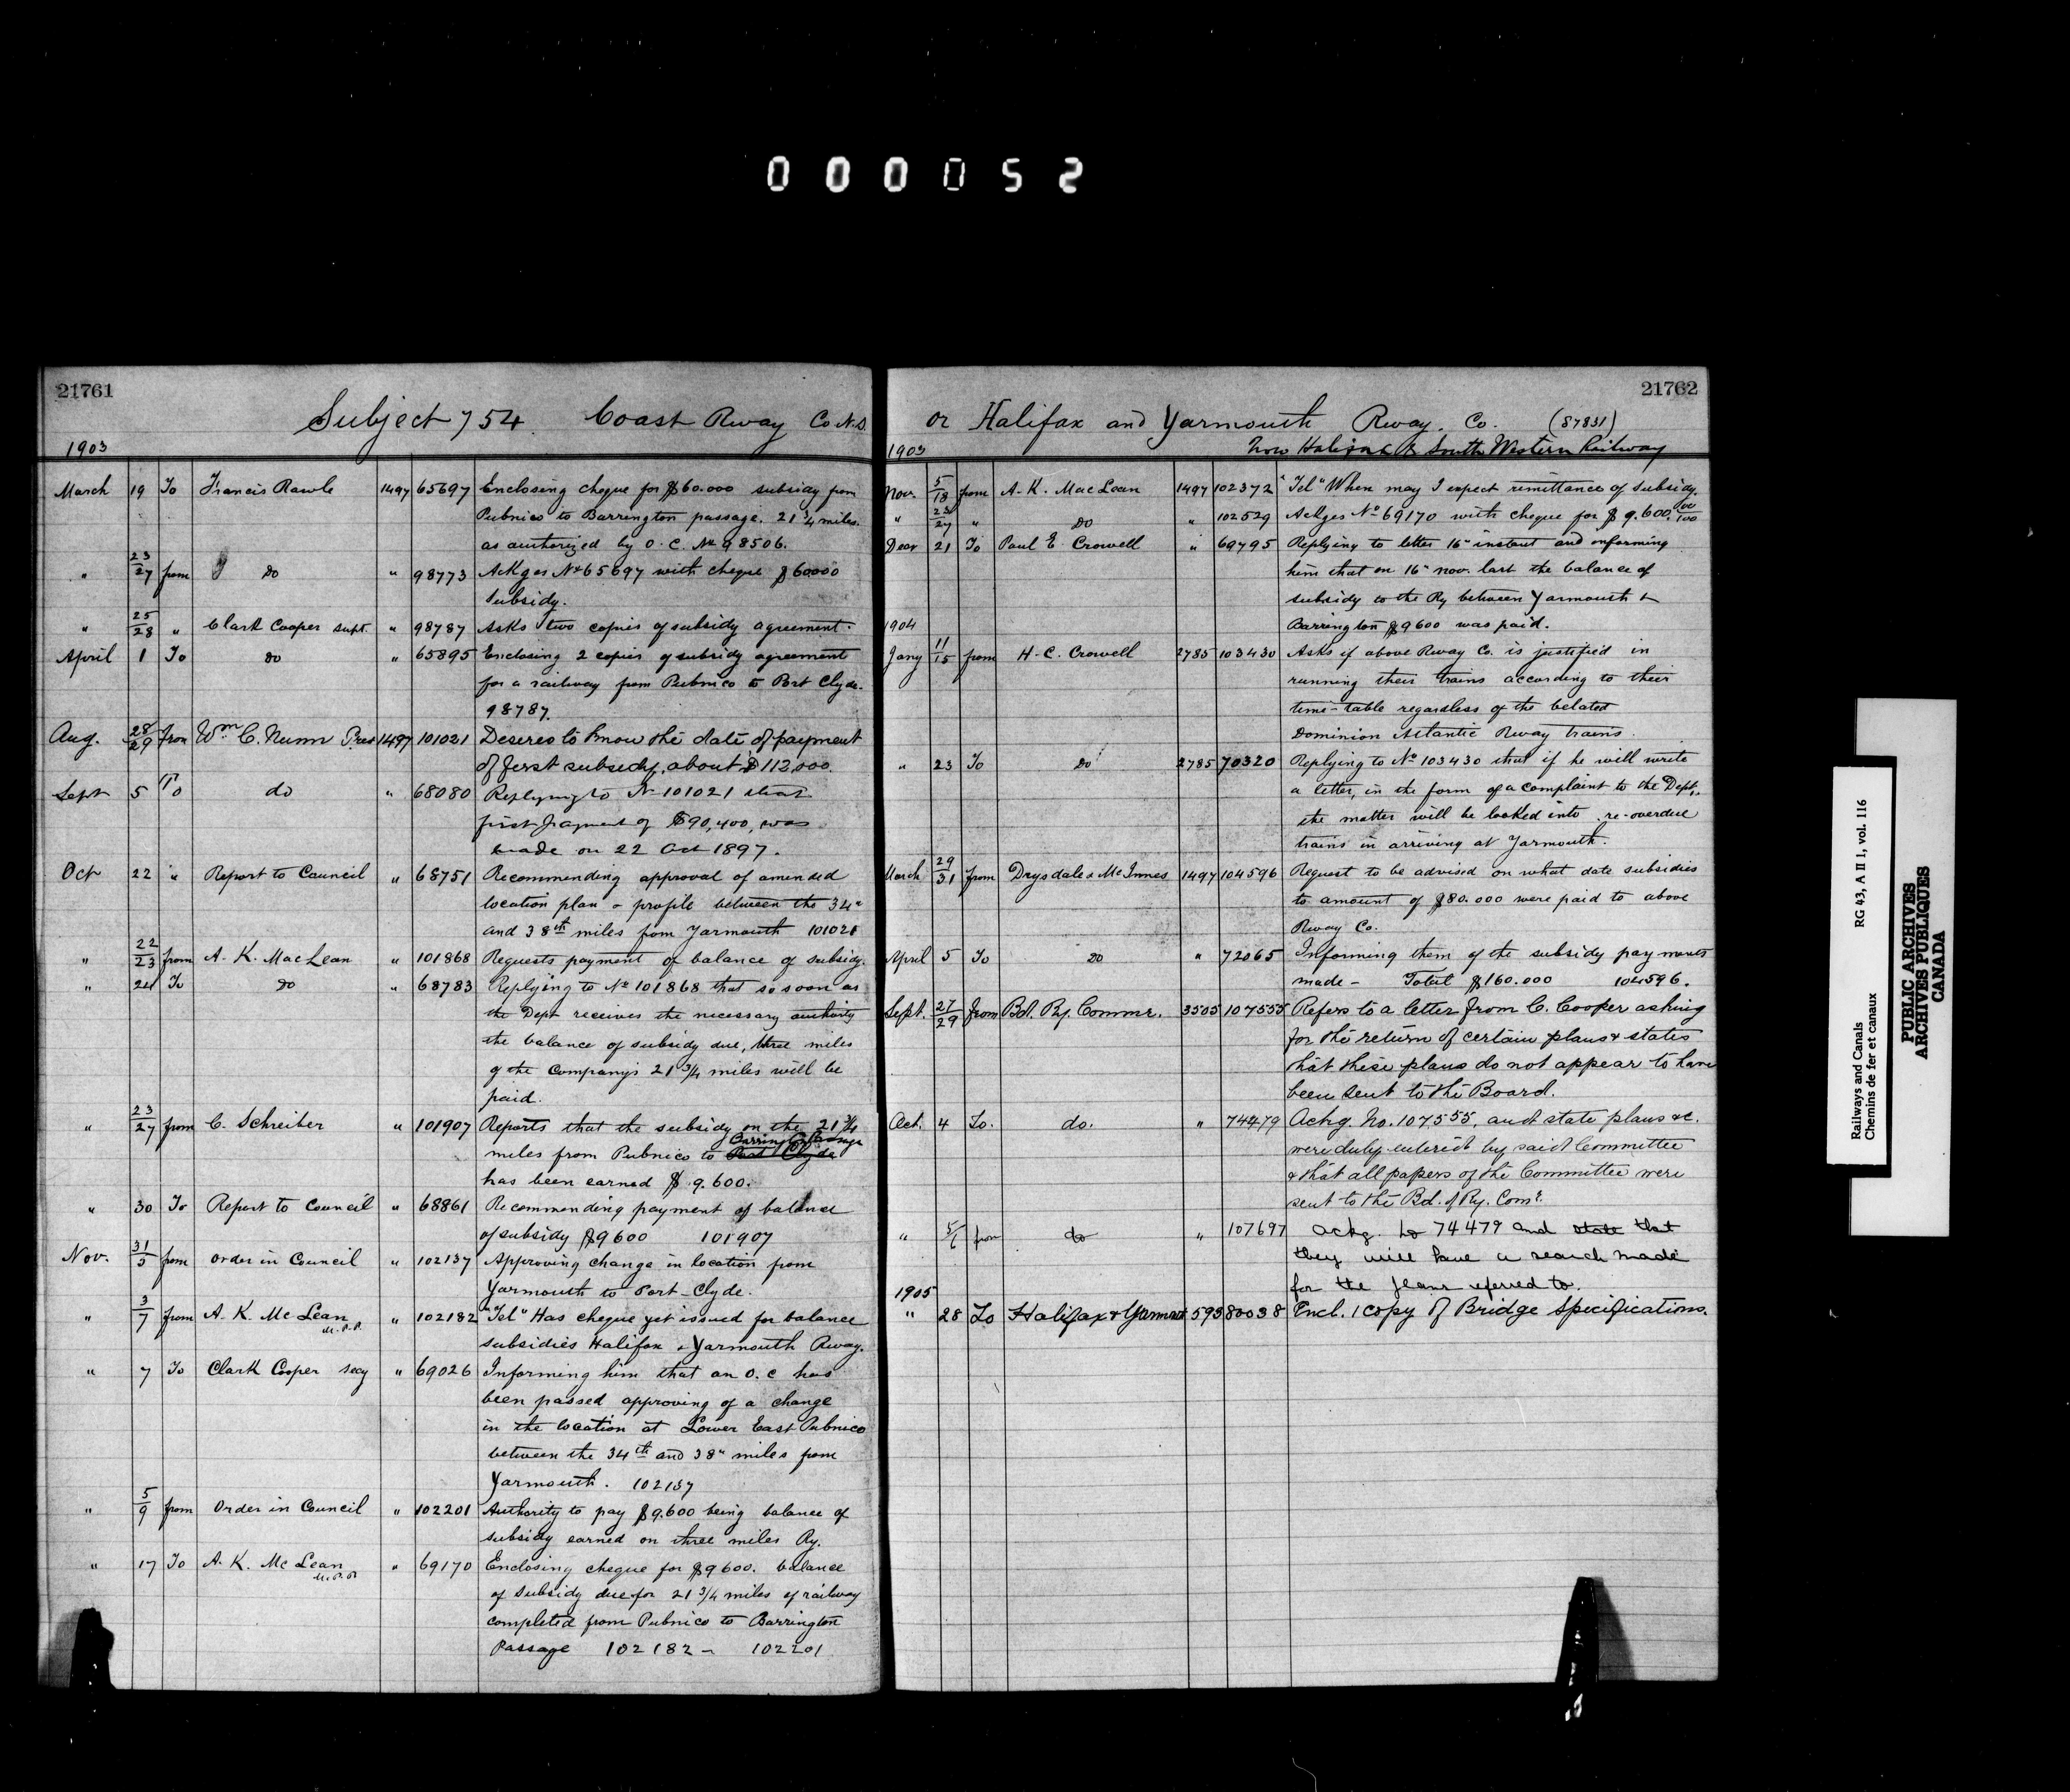 000052
21761
Subject 754 Coast Rway Co N.S.
1903
March 19 To Francis Rawle 1497 65697 Enclosing cheque for $60.000 subsidy from
Pubnico to Barrington passage. 21 3/4 miles.
as authorized by O.C. No 98506.
" 23/27 from do " 98773 Ackges No 65697 with cheque $60000
Subsidy.
" 25/28 " Clark Cooper supt. " 98787 Asks two copies of subsidy agreement.
April 1 To do " 65895 Enclosing 2 copies of subsidy agreement
for a railway from Pubnico to Port Clyde.
98787.
Aug. 28/29 from Wm C. Nunn Pres 1497 101021 Desires to know the date of payment
of first subsidy, about $112,000.
Sept 5 To do " 68080 Replying to No 101021 that
first payment of $90,400, was
made on 22 Oct 1897.
Oct 22 " Report to Council " 68751 Recommending approval of amended
location plan & profile between the 34"
and 38th miles from Yarmouth 101021
" 22/23 from A. K. MacLean " 101868 Requests payment of balance of subsidy.
" 24 To do " 68783 Replying to No 101868 that so soon as
the Dept receives the necessary authority
the balance of subsidy due, three miles
of the Companys 21 3/4 miles will be
paid.
" 23/27 from C. Schreiber " 101907 Reports that the subsidy on the 21 3/4
Barrington Passage
miles from Pubnico to Port Clyde
has been earned $9.600.
" 30 To Report to Council " 68861 Recommending payment of balance
of subsidy $9600 101907
Nov. 31/5 from Order in Council " 102137 Approving change in location from
Yarmouth to Port-Clyde.
" 3/7 from A. K. McLean M.P.P. " 102182 "Tel" Has cheque yet issued for balance
subsidies Halifax & Yarmouth Rway.
" 7 To Clark Cooper secy " 69026 Informing him that an O.C has
been passed approving of a change
in the location at Lower East Pubnico
between the 34th and 38" miles from
Yarmouth. 102137
" 5/9 from Order in Council " 102201 Authority to pay $9.600 being balance of
subsidy earned on three miles Ry.
" 17 To A. K. McLean M.P.P " 69170 Enclosing cheque for $9600. balance
of subsidy due for 21 3/4 miles of railway
completed from Pubnico to Barrington
Passage 102182 - 102201
21762
or Halifax and Yarmouth Rway. Co. (87831)
1903 now Halifax & South Western Railway
Nov. 5/13 from A. K. MacLean 1497 102372 "Tel" When may I expect remittance of subsidy.
" 23/27 " do " 102529 Ackges No 69170 with cheque for $9.600 00/100
Decr 21 To Paul E. Crowell " 69795 Replying to letter 16" instant and informing
him that on 16" nov. last the balance of
subsidy to the Ry between Yarmouth &
Barrington $9600 was paid.
1904
Jany 11/15 from H. C. Crowell 2785 103430 Asks if above Rway Co. is justified in
running their trains according to their
time-table regardless of the belated
Dominion Atlantic Rway trains.
" 23 To do 2785 70320 Replying to No 103430 that if he will write
a letter, in the form of a complaint to the Dept.,
the matter will be looked into re-overdue
trains in arriving at Yarmouth.
March 29/31 from Drysdale & McInnes 1497 104596 Request to be advised on what date subsidies
to amount of $80.000 were paid to above
Rway Co.
April 5 To do " 72065 Informing them of the subsidy payments
made - Total $160.000 104596.
Sept. 27/29 from Bd. Ry. Commr. 3505 107555 Refers to a letter from C. Cooper asking
for the return of certain plans & states
that these plans do not appear to have
been sent to the Board.
Oct. 4 To. do. " 74479 Ackg. No. 107555, and state plans &c.
were duly entered by said Committee
& that all papers of the Committee were
sent to the Bd. of Ry. Comr.
" 5/6 from do " 107697 Ackg. to 74479 and state that
they will have a search made
for the plans referred to.
1905
" 28 To Halifax & Yarmout 593 80038 Encl. 1 copy of Bridge Specifications.
Railways and Canals RG 43, A II 1, vol. 116
Chemins de fer et canaux
PUBLIC ARCHIVES
ARCHIVES PUBLIQUES
CANADA